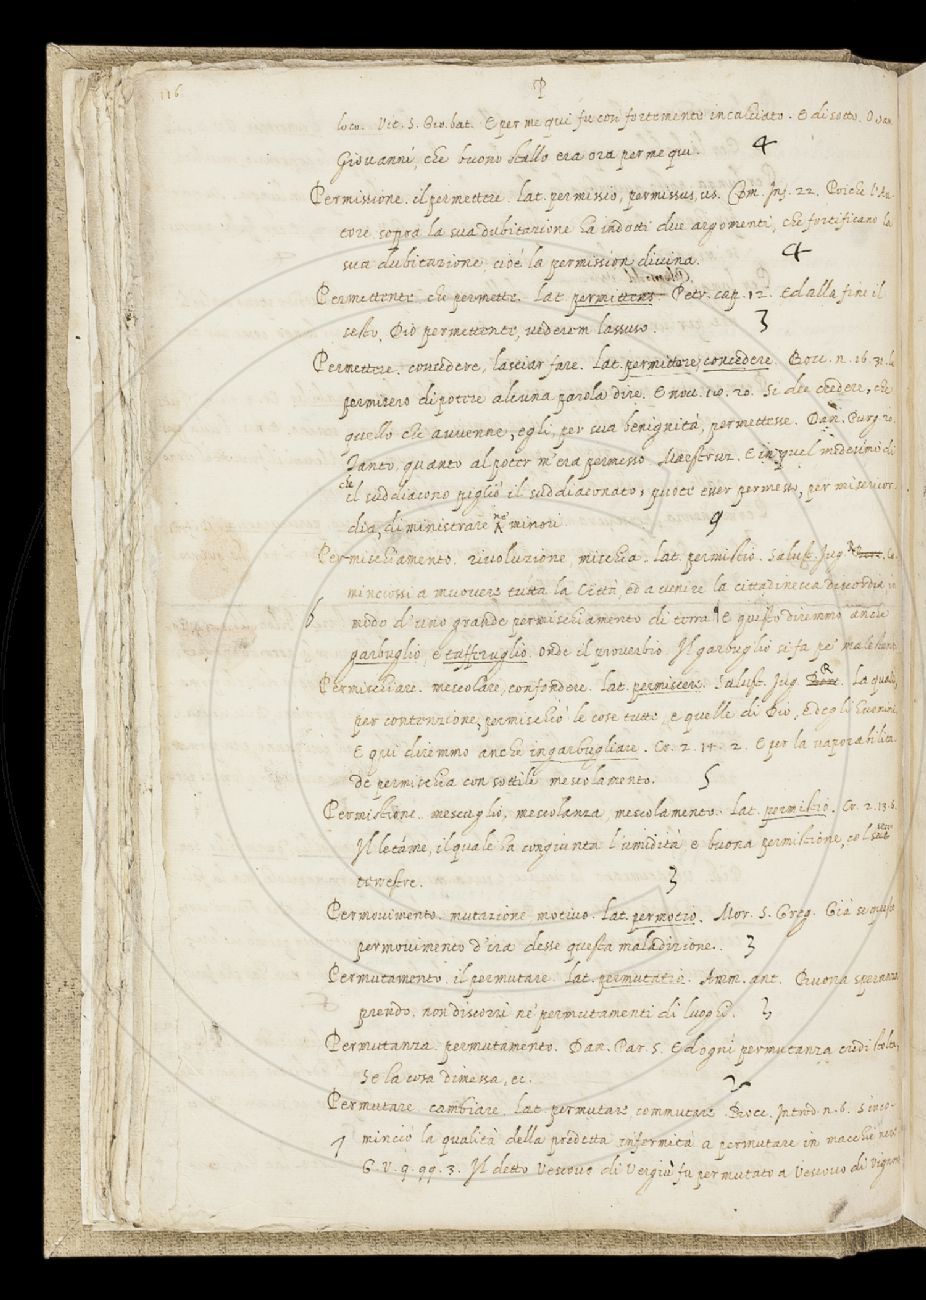 116
P
loco. Vit. S. Gio. bat. E per me qui fu così fortemente incalciato. E di sotto. O San
Giovanni, che buono stallo era ora per me qui. 4
Permissione. il permettere. lat. permissio, permissus, us. Com. Inf. 22. Poichè l'Au-
tore sopra la sua dubitazione ha indotti due argomenti, che fortificano la
sua dubitazione, cioè la permission divina. 4
Permettente, che permette. lat. permittens. Petr. cap. 12. E dalla fine il
resto, Dio permettente, vederem lassuso. 3
Permettere. concedere, lasciar fare. lat. permittere, concedere. Bocc. n. 16. 31. le
permisero di potere alcuna parola dire. E nov. 20. Si dee credere, che
quello che avvenne, egli, per sua benignità, permettesse. Dan. Purg.
Tanto, quanto al poter m'era permesso. Maestruz. E in quel medesimo dì
che il suddiacono pigliò il suddiaconato, puote esser permesso, per misericor-
dia, di ministrare ne' minori 9
Permischiamento. rivoluzione, mischia. lat. permistio. Salust. Jug. R. Co
minciossi a muovere tutta la Città, ed a venire la cittadinesca discordia in
6 modo d'uno grande permischiamento di terra. E questo diremmo anche
garbuglio, e taffruglio. onde il proverbio. Il garbuglio si fa pe' male stanti
Permischiare. mescolare, confondere. lat. permiscere. Salust. Jug. R. La quale,
per contenzione, permischiò le cose tutte, e quelle di Dio, e degli huomini
E qui diremmo anche ingarbugliare. Cr. 2. 14. 2. E per la vaporabilita-
de permischia con sottile mescolamento. 5
Permistione. mescuglio, mescolanza, mescolamento. lat. permistio. Cr. 2. 13. 6.
Il letáme, il quale ha congiunta l'umidità e buona permistione, col
terrestre. 3
Permovimento. mutazione motivo. lat. permotio. Mor. S. Greg. Già se questo
permovimento d'ira desse questa maladizione. 3
Permutamento. il permutare. lat. permutatio. Amm. ant. Buona speranza
prendo. non discorri nè permutamenti di luoghi. 3
Permutanza. permutamento. Dan. Par. 5. Ed ogni permutanza credi stolta,
Se la cosa dimessa, ec. 2
Permutare. cambiare. lat. permutare commutare. Bocc. Introd. n. 6. S'inco-
7 minciò la qualità della predetta infermità a permutare in macchie nere
G. V. 9. 99. 3. Il detto Vescovo di Vergiù fu permutato a Vescovo di